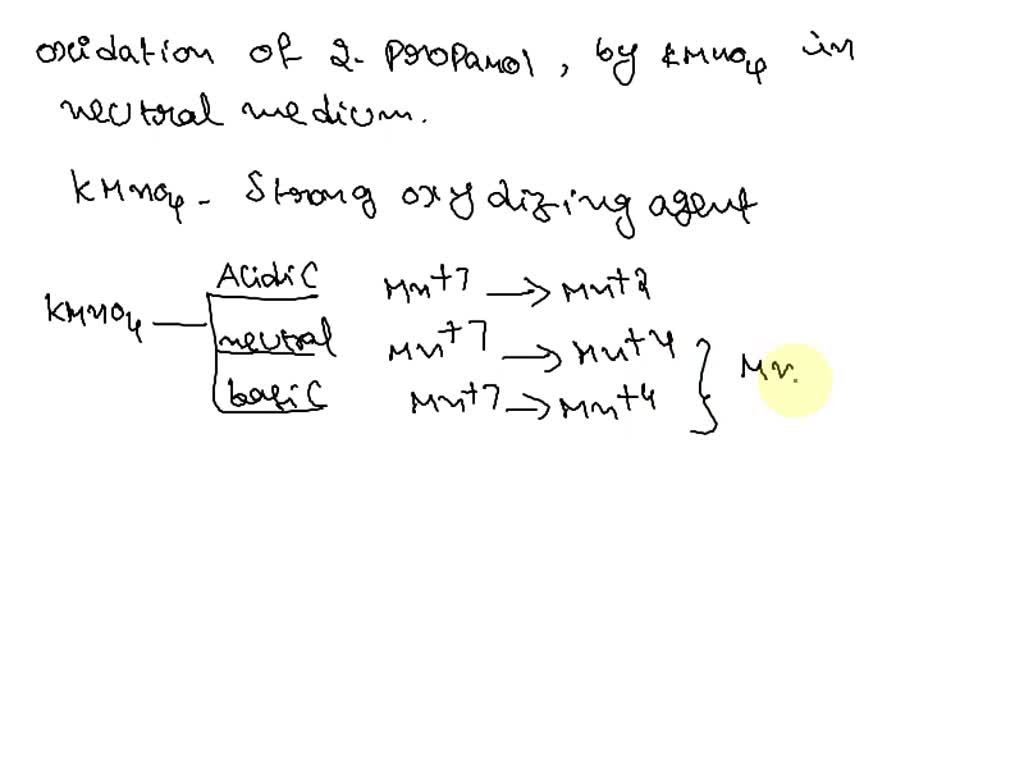 oxidation of 2-propanol, by KMnO4 in
neutral medium.
KMnO4 - Strong oxydizing agent
Acidic Mn+7 → Mn+2
KMnO4 neutral Mn+7 → Mn+4 } Mn
basic Mn+7 → Mn+4